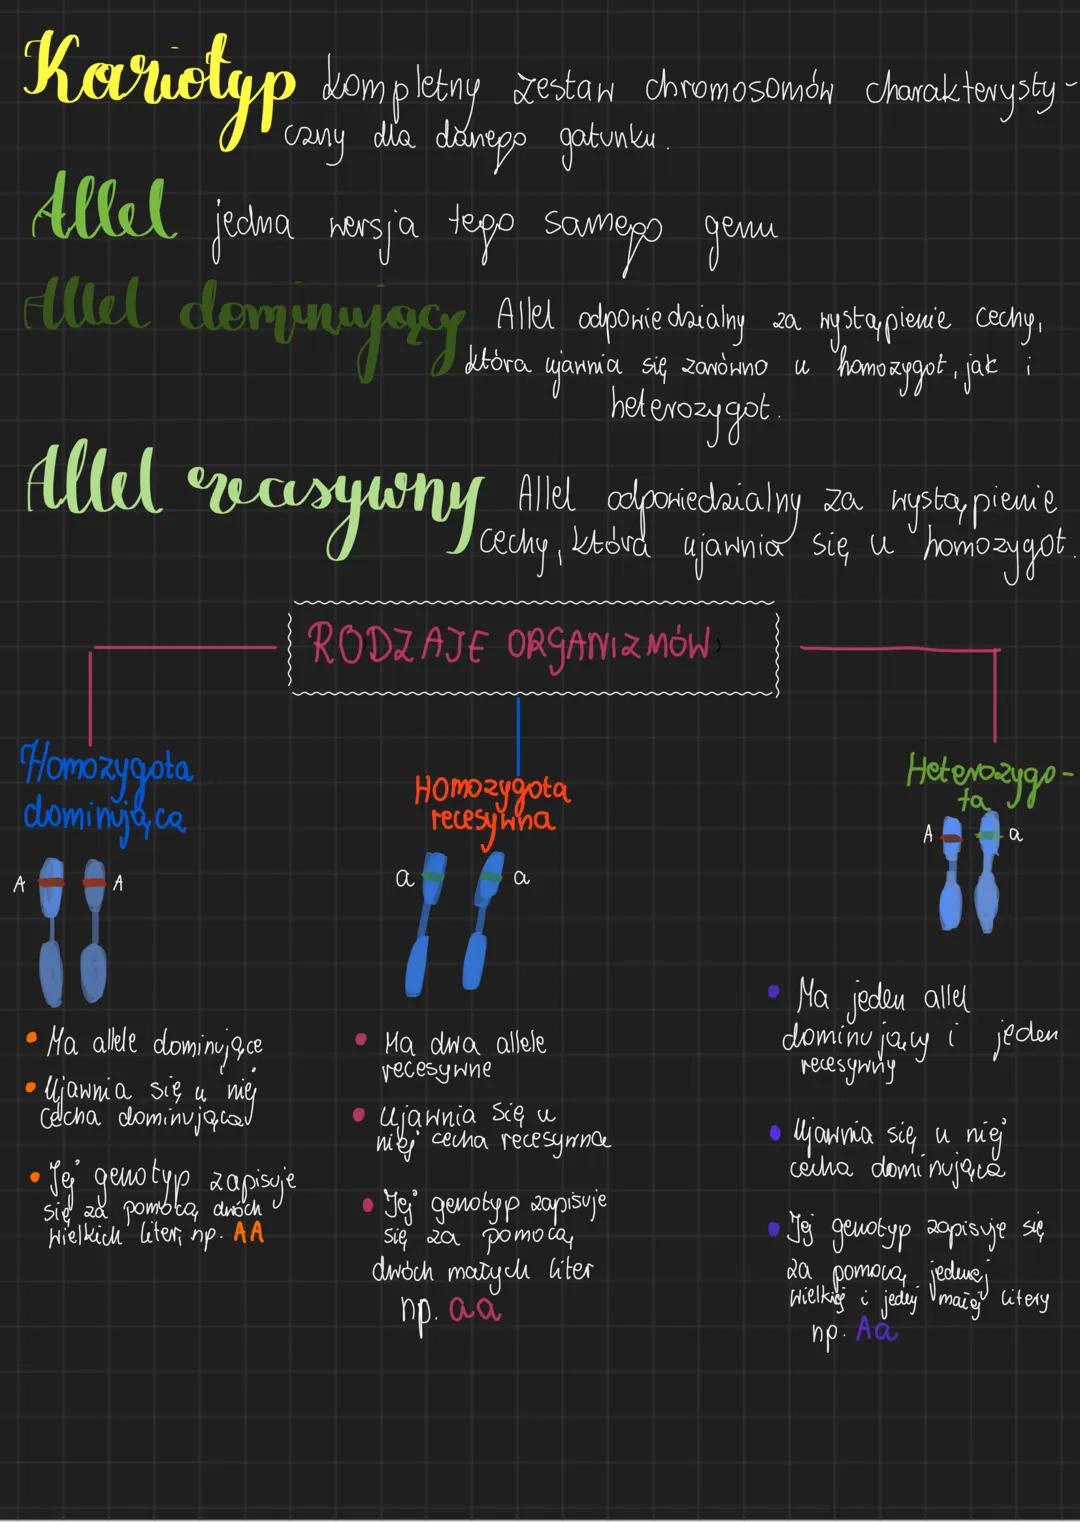 Kariotyp kompletny zestaw chromosomów charakterysty-
czny dla danego gatunku.
Allel jedna wersja tego samego genu
Allel dominujący Allel odpowiedzialny za wystąpienie cechy,
która ujawnia się zarówno u homozygot, jak i
heterozygot.
Allel recesywny Allel odpowiedzialny za wystąpienie
cechy, która ujawnia się u homozygot.
RODZAJE ORGANIZMÓW
Homozygota
dominująca
A A
• Ma allele dominujące
• Ujawnia się u niej
cecha dominująca
• Jej genotyp zapisuje
się za pomocą dwóch
wielkich liter, np. AA
Homozygota
recesywna
a a
• Ma dwa allele
recesywne
• Ujawnia się u
niej cecha recesywna
• Jej genotyp zapisuje
się za pomocą
dwóch małych liter
np. aa
Heterozygo-
ta
A a
• Ma jeden allel
dominujący i jeden
recesywny
• Ujawnia się u niej
cecha dominująca
• Jej genotyp zapisuje się
za pomocą jednej
wielkiej i jedej małej litery
np. Aa